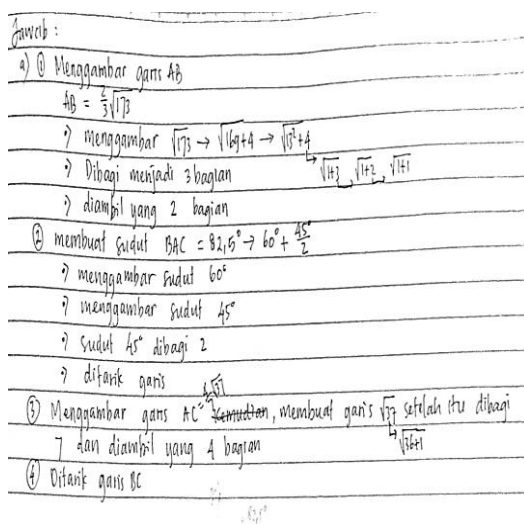 Jawab :
a) ① Menggambar garis AB
AB = 2/3 √173
•) menggambar √173 → √169+4 → √13²+4
•) Dibagi menjadi 3 bagian √1+3 √1+2 √1+1
•) diambil yang 2 bagian
② membuat sudut BAC = 82,5° → 60° + 45°/2
•) menggambar sudut 60°
•) menggambar sudut 45°
•) sudut 45° dibagi 2
•) ditarik garis
③ Menggambar garis AC = 4/7 √37, membuat garis √37 setelah itu dibagi
7 dan diambil yang 4 bagian √36+1
④ Ditarik garis BC
82,5°